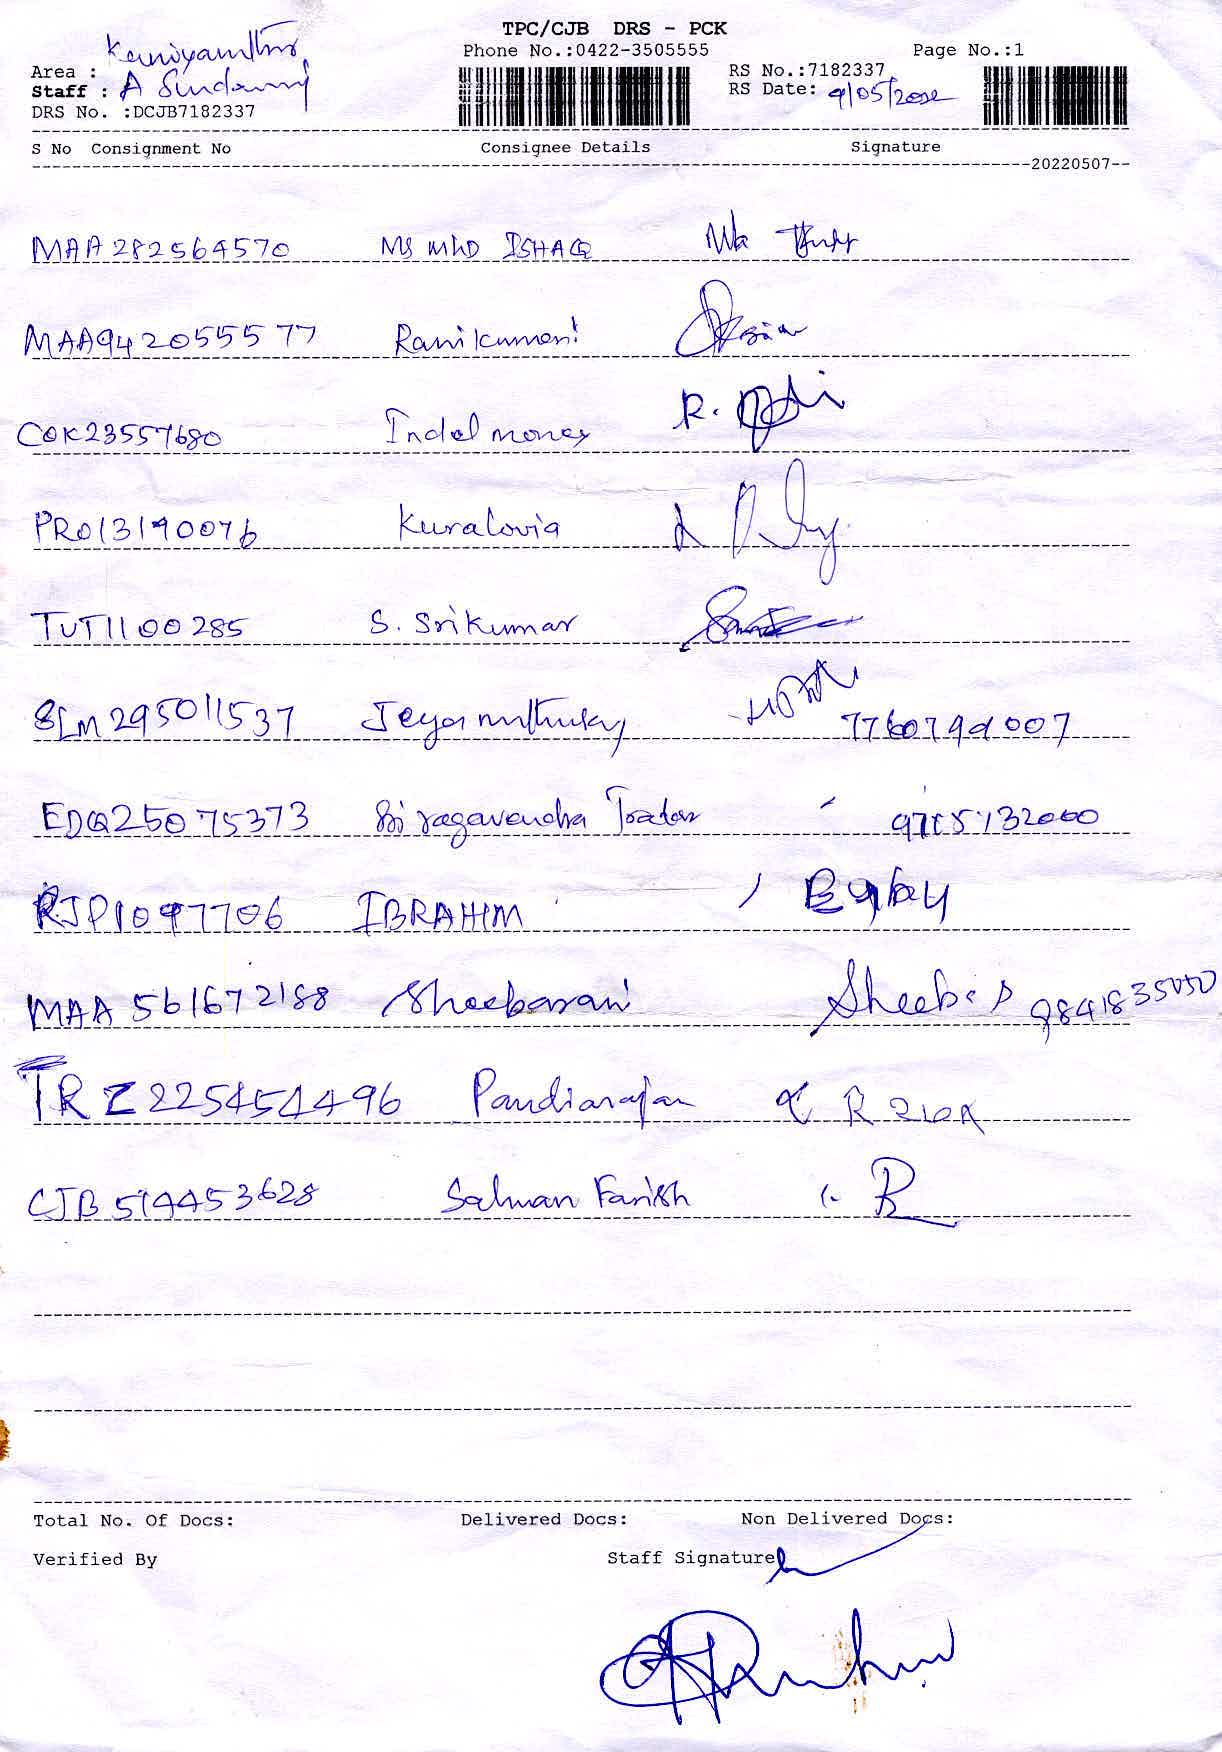 TPC/CJB DRS - PCK
Phone No.:0422-3505555 Page No.:1
Area :
Staff : A
RS No.:7182337
RS Date: 9/05/2022
DRS No. :DCJB7182337
S No Consignment No Consignee Details Signature
20220507
MAA282564570 MS MHD ISHAQ
MAA942055577 Ranikumari
COK23557680 Indel money
PRO13190076 Kuralovia
TUT1100285 S. Srikumar
SLM295011537 7760799007
EDQ25075373 Sri ragavendra
RJP1097706 IBRAHIM
MAA561672188 Sheebarani Sheeba 9841835050
TRZ225454496 Pandiarajan
CJB514453628 Salman Farish
Total No. Of Docs: Delivered Docs: Non Delivered Docs:
Verified By Staff Signature